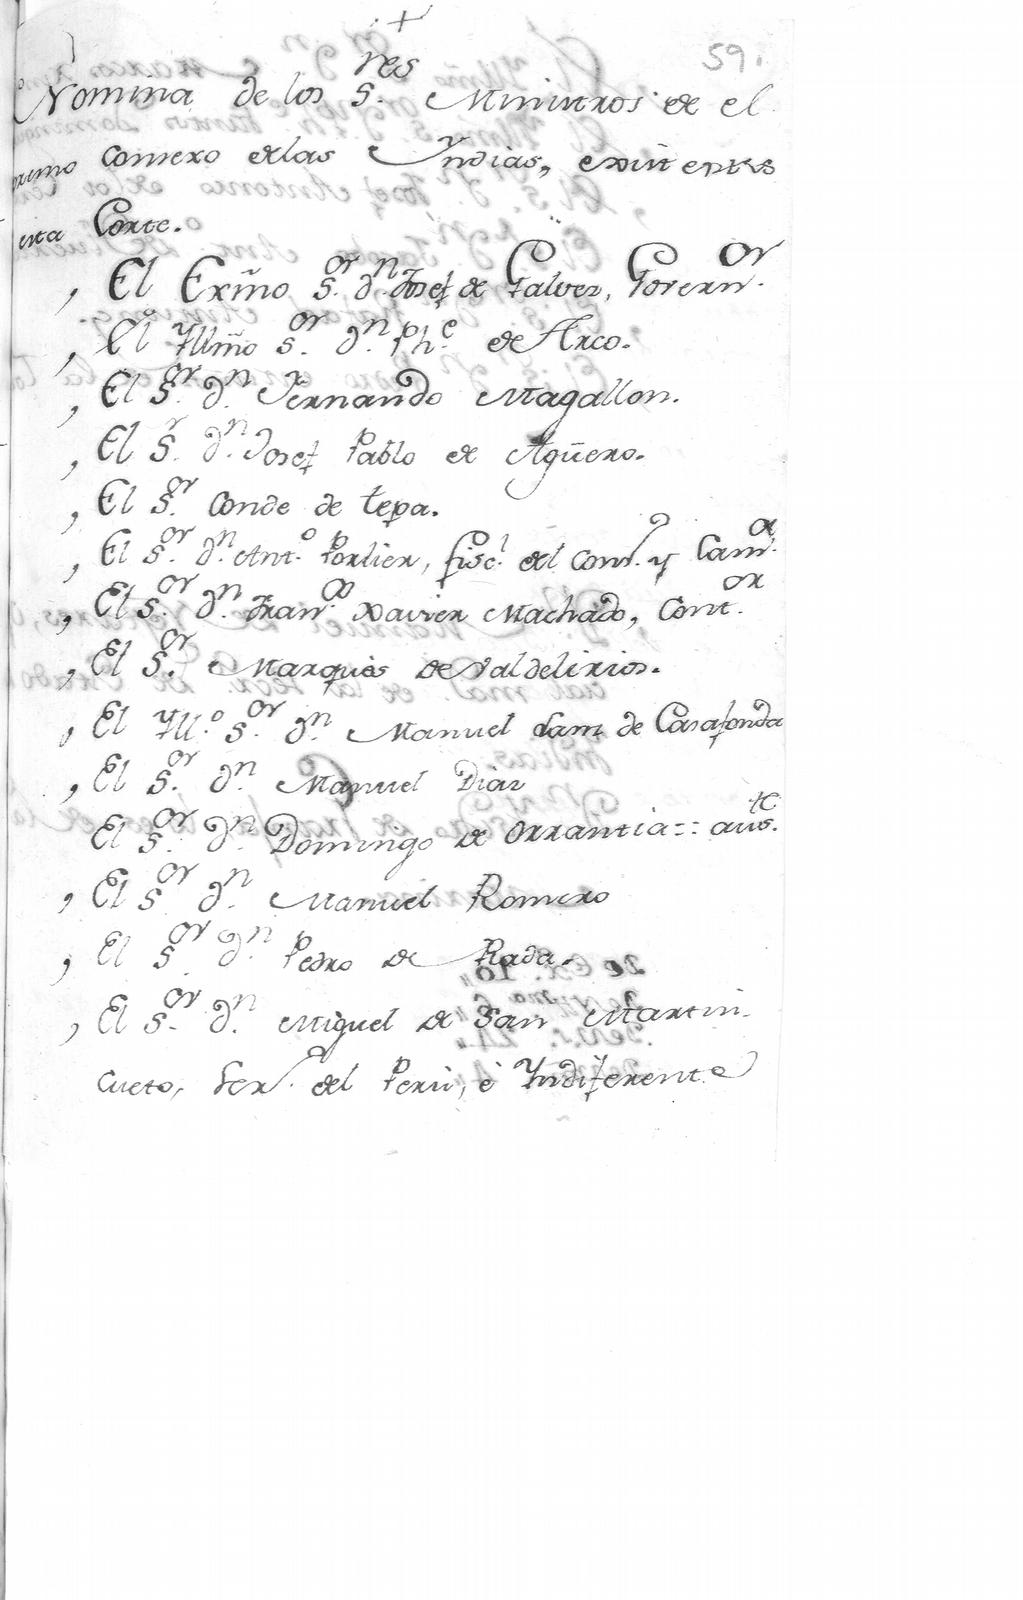 +
59.
Nomina de los S.res Ministros de el
premo Consexo de las Yndias, existentes
esta Corte.
El Exmo S.or d.n Josef de Galvez, Govern.or
El Yllmo S.or d.n Ph.e de Arco.
El S.or d.n Fernando Magallon.
El S.r d.n Josef Pablo de Agüero.
El S.or Conde de tepa.
El S.or d.n Ant.o Porlier, fisc.l del Cons.o y Cam.a
El S.or d.n Fran.co Xavier Machado, Cont.or
El S.or Marques de Valdelirios.
El Yll.o S.or d.n Manuel Lanz de Casafonda
El S.or d.n Manuel Diaz
El S.or d.n Domingo de Orrantia = = aus.te
El S.or d.n Manuel Romero
El S.or d.n Pedro de Rada.
El S.or d.n Miguel de San Martin
Cueto, Secr.o del Perù, è Yndiferente